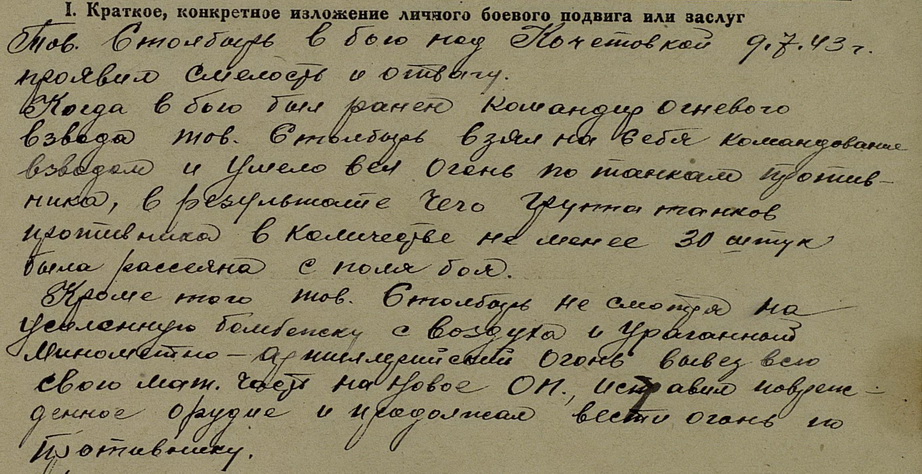 I. Краткое, конкретное изложение личного боевого подвига или заслуг
Тов. Столбырь в бою под Кочетовкой 9.7.43 г.
проявил смелость и отвагу.
Когда в бою был ранен командир огневого
взвода тов. Столбырь взял на себя командование
взводом и умело вел огонь по танкам против-
ника, в результате чего группа танков
противника в количестве не менее 30 штук
была рассеяна с поля боя.
Кроме того тов. Столбырь не смотря на
усиленную бомбежку с воздуха и ураганный
минометно-артиллерийский огонь вывез всю
свою мат. часть на новое ОП., исправил повреж-
денное орудие и продолжал вести огонь по
противнику.